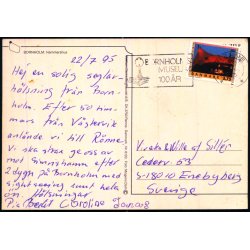 BORNHOLM Hammershus
22/7 95
Hej en solig seglar-
hälsning från Born-
holm. Efter 50 tim-
mars från Västervik
anlände vi till Rönne.
Vi ska strax ge oss av
mot Svaneke efter
2 dygn på Bornholm med
sightseeing runt hela
ön. Hälsningar
Pia Bertil Caroline
BORNHOLMS
MUSEUM
100 ÅR
DANMARK
& Wille af Sillén
Cederv. 53
S-18010 Enebyberg
Sverige